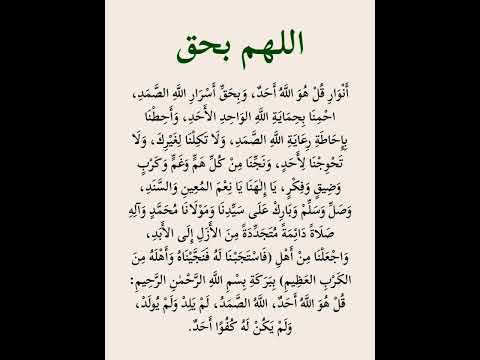 اللهم بحق
أَنْوَارِ قُلْ هُوَ اللَّهُ أَحَدٌ، وَبِحَقِّ أَسْرَارِ اللَّهِ الصَّمَدِ،
احْمِنَا بِحِمَايَةِ اللَّهِ الوَاحِدِ الأَحَدِ، وَأَحِطْنَا
بِإِحَاطَةِ رِعَايَةِ اللَّهِ الصَّمَدِ، وَلَا تَكِلْنَا لِغَيْرِكَ، وَلَا
تَحُوجْنَا لِأَحَدٍ، وَنَجِّنَا مِنْ كُلِّ هَمٍّ وَغَمٍّ وَكَرْبٍ
وَضِيقٍ وَفِكْرٍ، يَا إِلَهَنَا يَا نِعْمَ المُعِينِ وَالسَّنَدِ،
وَصَلِّ وَسَلِّمْ وَبَارِكْ عَلَى سَيِّدِنَا وَمَوْلَانَا مُحَمَّدٍ وَآلِهِ
صَلَاةً دَائِمَةً مُتَجَدِّدَةً مِنَ الأَزَلِ إِلَى الأَبَدِ،
وَاجْعَلْنَا مِنْ أَهْلِ (فَاسْتَجَبْنَا لَهُ فَنَجَّيْنَاهُ وَأَهْلَهُ مِنَ
الكَرْبِ العَظِيمِ) بِبَرَكَةِ بِسْمِ اللَّهِ الرَّحْمَٰنِ الرَّحِيمِ:
قُلْ هُوَ اللَّهُ أَحَدٌ، اللَّهُ الصَّمَدُ، لَمْ يَلِدْ وَلَمْ يُولَدْ،
وَلَمْ يَكُنْ لَهُ كُفُوًا أَحَدٌ.